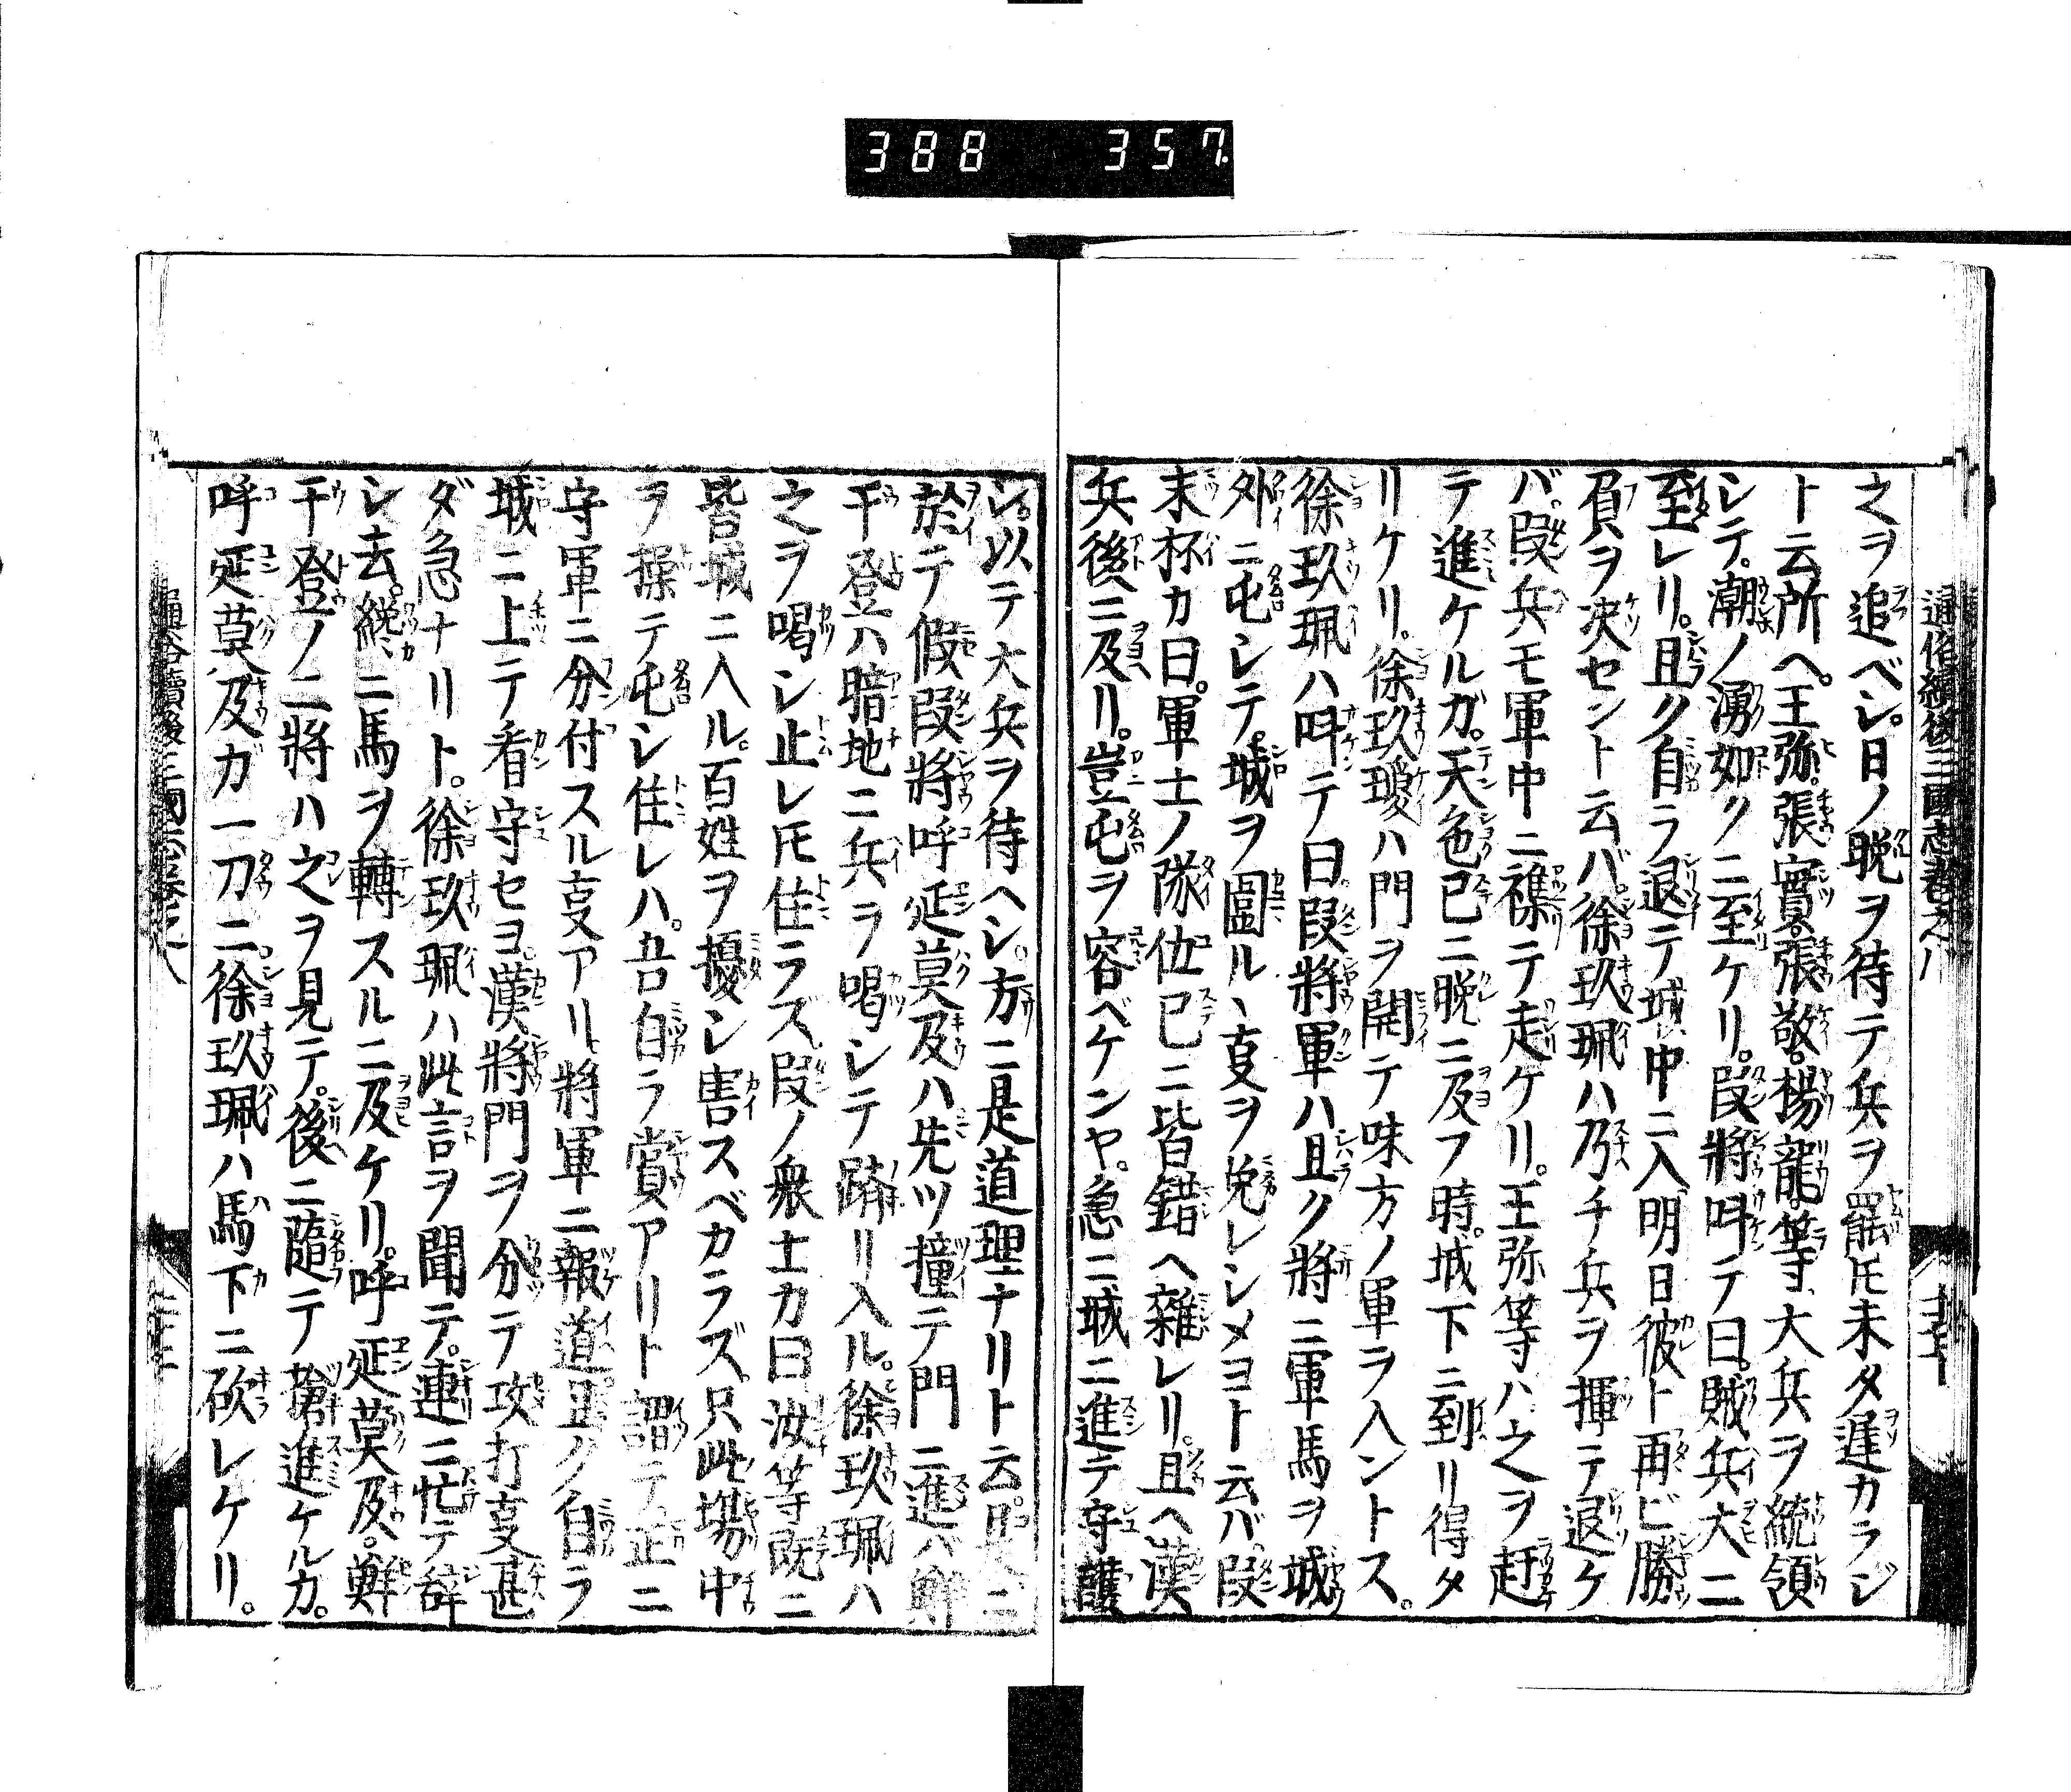 388 357
通俗續後三國志巻之八
之ヲ追ベシ。日ノ晩ヲ待テ兵ヲ罷𪜈未タ遅カラジ
ト云所ヘ。王弥。張實。張敬。楊龍。等大兵ヲ統領
シテ。潮ノ湧如クニ至ケリ。段將呌テ曰。賊兵大ニ
至レリ。且ク自ラ退テ城中ニ入明日彼ト再ビ勝
負ヲ决セント云バ。徐玖珮ハ乃チ兵ヲ揮テ退ケ
バ。段兵モ軍中ニ襍テ走ケリ。王弥等ハ之ヲ赶
テ進ケルガ。天色已ニ晩ニ及フ時。城下ニ到リ得タ
リケリ。徐玖瓊ハ門ヲ開テ味方ノ軍ヲ入ントス。
徐玖珮ハ呌テ曰。段將軍ハ且ク將ニ軍馬ヲ城
外ニ屯シテ。城ヲ圍ル丶㕝ヲ免レシメヨト云バ。段
末杯カ曰。軍士ノ隊伍已ニ皆錯ヘ雜レリ。且ヘ漢
兵後ニ及リ。豈屯ヲ容ベケンヤ。急ニ城ニ進テ守護
シ。以テ大兵ヲ待ヘシ。方ニ是道理ナリト云。是ニ
於テ假段將呼延莫及ハ先ツ撞テ門ニ進バ鮮
于登ハ暗地ニ兵ヲ喝シテ踊リ入ル。徐玖珮ハ
之ヲ喝シ止レ𪜈住ラズ。段ノ衆士カ曰汝等既ニ
皆城ニ入ル。百姓ヲ擾シ害スベカラズ。只此塲中
ヲ操テ屯シ住レハ。吾自ラ賞アリト謂テ正ニ
守軍ニ分付スル㕝アリ將軍ニ報道且ク自ラ
城ニ上テ看守セヨ。漢將門ヲ分テ攻打㕝甚
ダ急ナリト。徐玖珮ハ此言ヲ聞テ。連ニ忙テ辞
シ去。纔ニ馬ヲ轉スルニ及ケリ。呼延莫及。鮮
于登ノ二將ハ之ヲ見テ。後ニ隨テ鎗進ケルカ。
呼延莫及ガ一刀ニ徐玖珮ハ馬下ニ砍レケリ。
通俗續後三國志巻之八